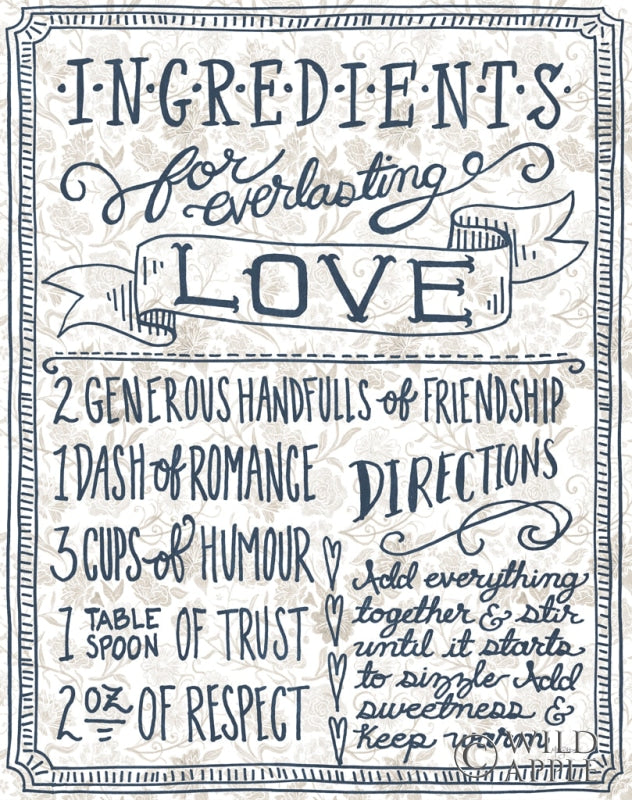 ·I·N·G·R·E·D·I·E·N·T·S·
for everlasting
LOVE
2 GENEROUS HANDFULLS of FRIENDSHIP
1 DASH of ROMANCE
3 CUPS of HUMOUR
1 TABLE SPOON OF TRUST
2 OZ OF RESPECT
DIRECTIONS
Add everything
together & stir
until it starts
to sizzle Add
sweetness &
keep warm
© WILD APPLE